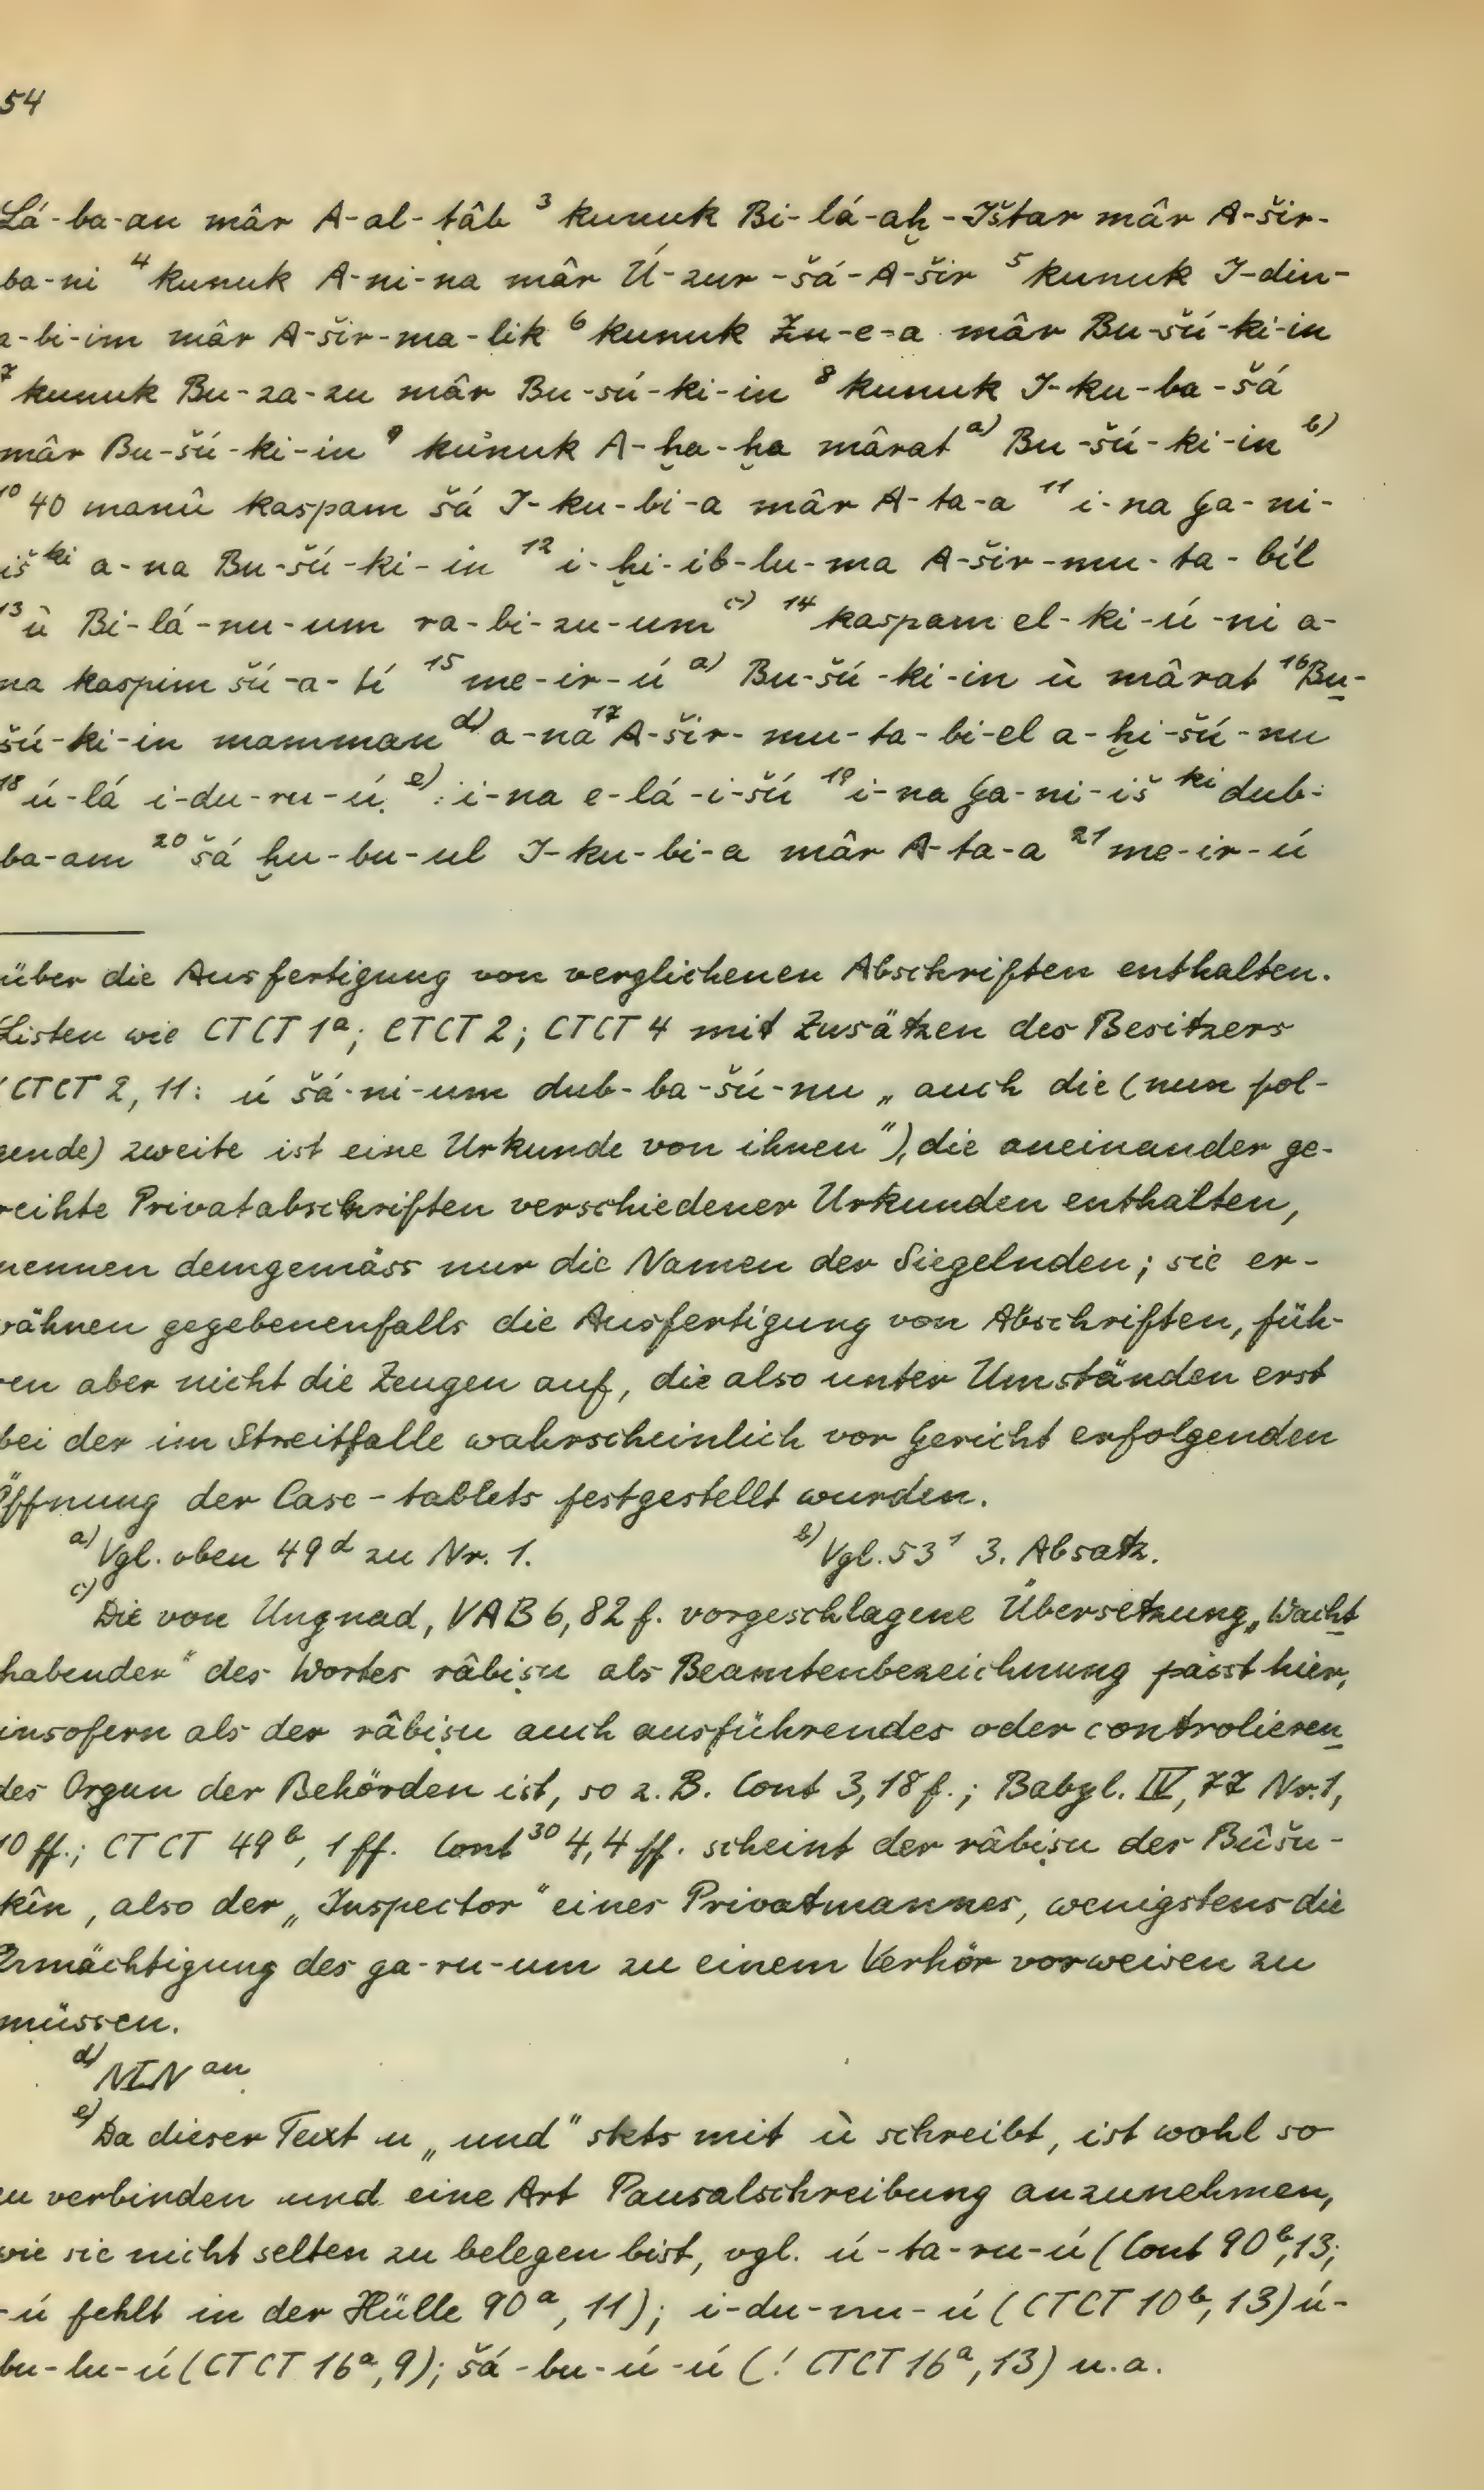 54
Lá-ba-an mâr A-al-ṭâb ³ kunuk Bi-lá-aḫ-Ištar mâr A-šir-
ba-ni ⁴ kunuk A-ni-na mâr Ú-zur-šá-A-šir ⁵ kunuk I-din-
a-bi-im mâr A-šir-ma-lik ⁶ kunuk Zu-e-a mâr Bu-šú-ki-in
⁷ kunuk Bu-za-zu mâr Bu-sú-ki-in ⁸ kunuk I-ku-ba-šá
mâr Bu-šú-ki-in ⁹ kunuk A-ḫa-ḫa mârat a) Bu-šú-ki-in b)
¹⁰ 40 manû kaspam šá I-ku-bi-a mâr A-ta-a ¹¹ i-na Ga-ni-
iš ᵏⁱ a-na Bu-šú-ki-in ¹² i-ḫi-ib-lu-ma A-šir-mu-ta-bíl
¹³ ù Bi-lá-nu-um ra-bi-zu-um c) ¹⁴ kaspam el-ki-ú-ni a-
na kaspim šú-a-tí ¹⁵ me-ir-ú a) Bu-šú-ki-in ù mârat ¹⁶ Bu-
šú-ki-in mamman d) a-na ¹⁷ A-šir-mu-ta-bi-el a-ḫi-šú-nu
¹⁸ ú-lá i-du-ru-ú. e): i-na e-lá-i-šú ¹⁹ i-na Ga-ni-iš ᵏⁱ dub-
ba-am ²⁰ šá ḫu-bu-ul I-ku-bi-a mâr A-ta-a ²¹ me-ir-ú
über die Ausfertigung von verglichenen Abschriften enthalten.
Listen wie CTCT 1ᵃ; CTCT 2; CTCT 4 mit Zusätzen des Besitzers
(CTCT 2, 11: ú šá-ni-um dub-ba-šú-nu „auch die (nun fol-
gende) zweite ist eine Urkunde von ihnen"), die aneinander ge-
reihte Privatabschriften verschiedener Urkunden enthalten,
nennen demgemäss nur die Namen der Siegelnden; sie er-
wähnen gegebenenfalls die Ausfertigung von Abschriften, füh-
ren aber nicht die Zeugen auf, die also unter Umständen erst
bei der im Streitfalle wahrscheinlich vor Gericht erfolgenden
Öffnung der Case-tablets festgestellt wurden.
a) Vgl. oben 49ᵈ zu Nr. 1. b) Vgl. 53¹ 3. Absatz.
c) Die von Ungnad, VAB 6, 82 f. vorgeschlagene Übersetzung „Wacht
habender" des Wortes râbiṣu als Beamtenbezeichnung passt hier,
insofern als der râbiṣu auch ausführendes oder controlieren
des Organ der Behörden ist, so z. B. Cont 3, 18 f.; Babyl. IV, 77 Nr. 1,
10 ff.; CTCT 49ᵇ, 1 ff. Cont³⁰ 4, 4 ff. scheint der râbiṣu der Bûšu-
kîn, also der „Inspector" eines Privatmannes, wenigstens die
Ermächtigung des ga-ru-um zu einem Verhör vorweisen zu
müssen.
d) NIN ᵃⁿ
e) Da dieser Text u „und" stets mit ù schreibt, ist wohl so
zu verbinden und eine Art Pausalschreibung anzunehmen,
wie sie nicht selten zu belegen bist, vgl. ú-ta-ru-ú (Cont 90ᵇ, 13;
-ú fehlt in der Hülle 90ᵃ, 11); i-du-nu-ú (CTCT 10ᵇ, 13) ú-
bu-lu-ú (CTCT 16ᵃ, 9); šá-bu-ú-ú (! CTCT 16ᵃ, 13) u.a.